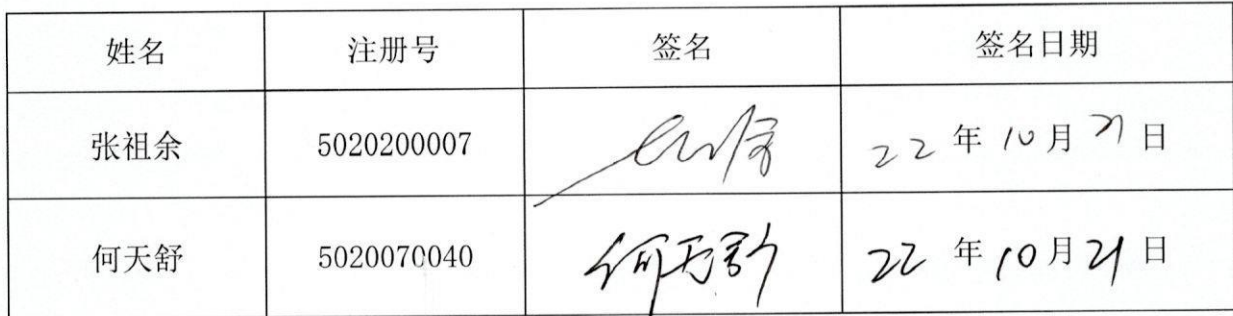 姓名 注册号 签名 签名日期
张祖余 5020200007 22年10月21日
何天舒 5020070040 何天舒 22年10月21日